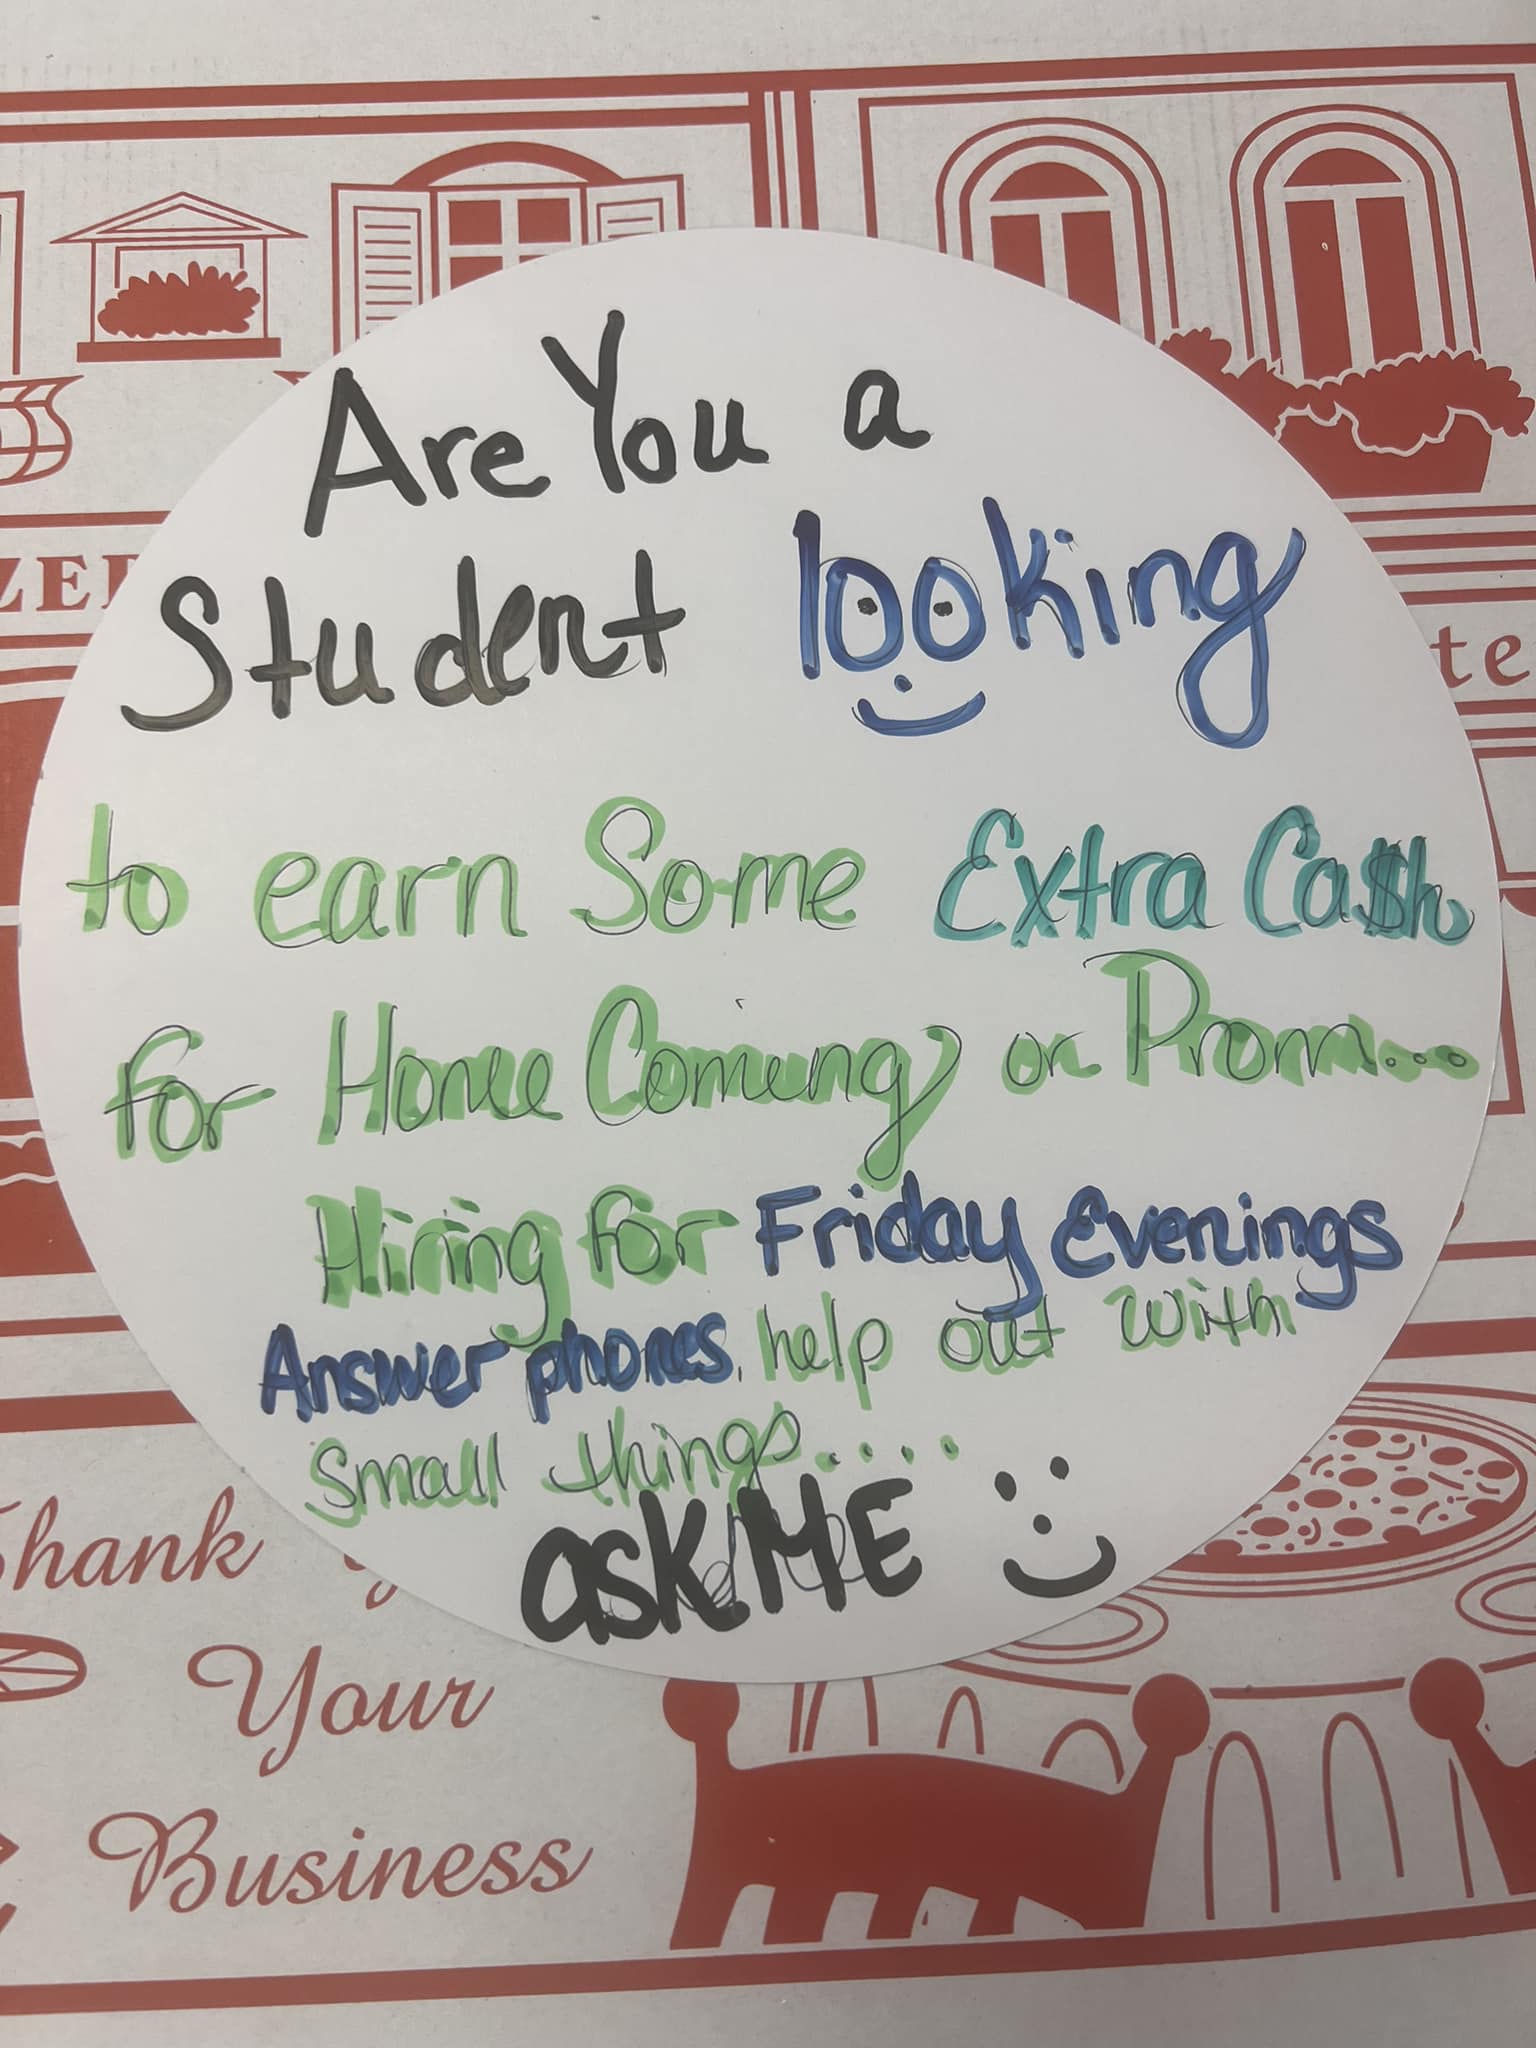 Are You a
Student looking
to earn Some Extra Ca$h
for Home Coming or Prom...
Hiring for Friday Evenings
Answer phones, help out with
small things.....
ask ME
ZER
te
Thank
Your
Business